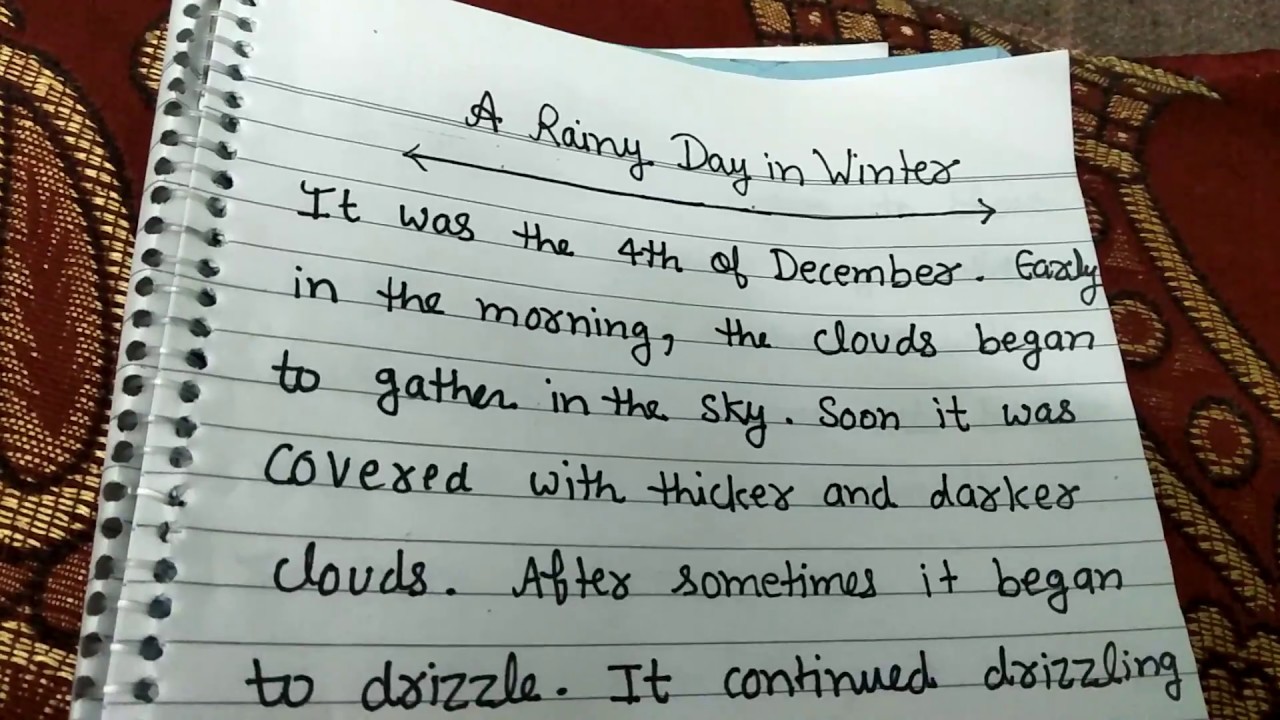 A Rainy Day in Winter
It was the 4th of December. Early
in the morning, the clouds began
to gather in the sky. Soon it was
covered with thicker and darker
clouds. After sometimes it began
to drizzle. It continued drizzling